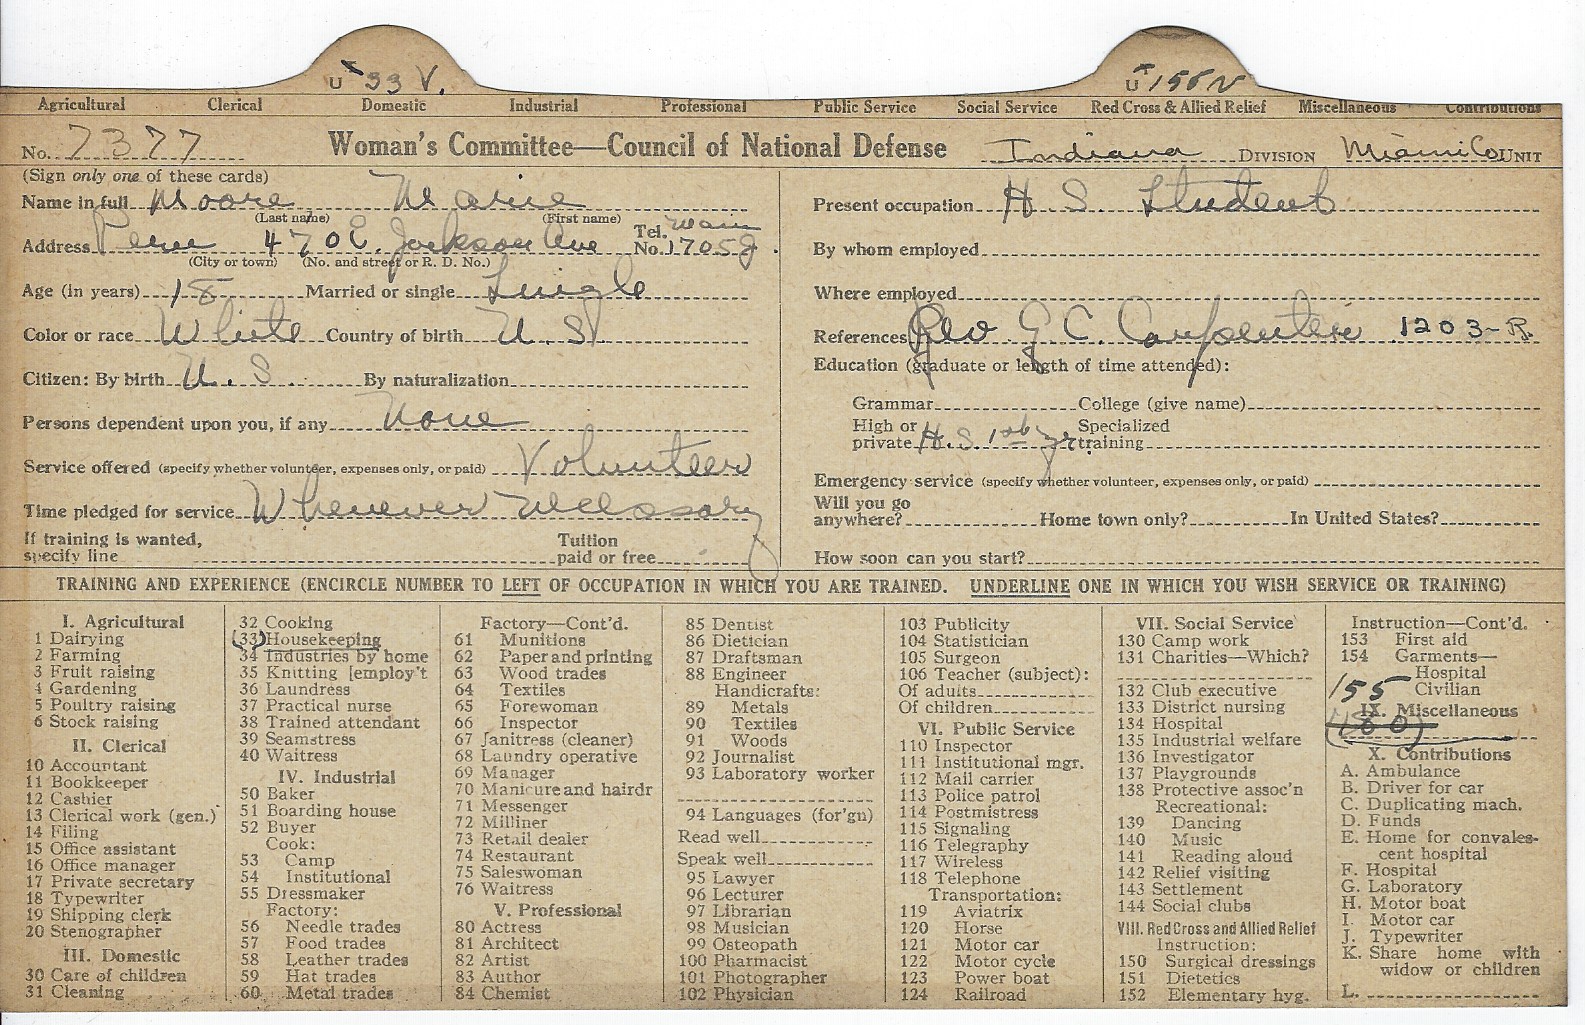 U 33 V. U 155 V
Agricultural Clerical Domestic Industrial Professional Public Service Social Service Red Cross & Allied Relief Miscellaneous Contributions
No. 7377 Woman's Committee—Council of National Defense Indiana DIVISION Miami Co UNIT
(Sign only one of these cards)
Name in full Moore Marie
(Last name) (First name)
Address Peru 470 E. Jackson Ave Tel. No. Main 1705J.
(City or town) (No. and street or R. D. No.)
Age (in years) 18 Married or single Single
Color or race White Country of birth U. S.
Citizen: By birth U. S. By naturalization
Persons dependent upon you, if any None
Service offered (specify whether volunteer, expenses only, or paid) Volunteer
Time pledged for service Whenever necessary
If training is wanted, specify line Tuition paid or free
Present occupation H S. Student
By whom employed
Where employed
References Rev. G C. Carpenter 1203-R.
Education (graduate or length of time attended):
Grammar College (give name)
High or private H. S. 1st yr Specialized training
Emergency service (specify whether volunteer, expenses only, or paid)
Will you go anywhere? Home town only? In United States?
How soon can you start?
TRAINING AND EXPERIENCE (ENCIRCLE NUMBER TO LEFT OF OCCUPATION IN WHICH YOU ARE TRAINED. UNDERLINE ONE IN WHICH YOU WISH SERVICE OR TRAINING)
I. Agricultural
1 Dairying
2 Farming
3 Fruit raising
4 Gardening
5 Poultry raising
6 Stock raising
II. Clerical
10 Accountant
11 Bookkeeper
12 Cashier
13 Clerical work (gen.)
14 Filing
15 Office assistant
16 Office manager
17 Private secretary
18 Typewriter
19 Shipping clerk
20 Stenographer
III. Domestic
30 Care of children
31 Cleaning
32 Cooking
(33) Housekeeping
34 Industries by home
35 Knitting [employ't
36 Laundress
37 Practical nurse
38 Trained attendant
39 Seamstress
40 Waitress
IV. Industrial
50 Baker
51 Boarding house
52 Buyer
Cook:
53 Camp
54 Institutional
55 Dressmaker
Factory:
56 Needle trades
57 Food trades
58 Leather trades
59 Hat trades
60 Metal trades
Factory—Cont'd.
61 Munitions
62 Paper and printing
63 Wood trades
64 Textiles
65 Forewoman
66 Inspector
67 Janitress (cleaner)
68 Laundry operative
69 Manager
70 Manicure and hairdr
71 Messenger
72 Milliner
73 Retail dealer
74 Restaurant
75 Saleswoman
76 Waitress
V. Professional
80 Actress
81 Architect
82 Artist
83 Author
84 Chemist
85 Dentist
86 Dietician
87 Draftsman
88 Engineer
Handicrafts:
89 Metals
90 Textiles
91 Woods
92 Journalist
93 Laboratory worker
94 Languages (for'gn)
Read well
Speak well
95 Lawyer
96 Lecturer
97 Librarian
98 Musician
99 Osteopath
100 Pharmacist
101 Photographer
102 Physician
103 Publicity
104 Statistician
105 Surgeon
106 Teacher (subject):
Of adults
Of children
VI. Public Service
110 Inspector
111 Institutional mgr.
112 Mail carrier
113 Police patrol
114 Postmistress
115 Signaling
116 Telegraphy
117 Wireless
118 Telephone
Transportation:
119 Aviatrix
120 Horse
121 Motor car
122 Motor cycle
123 Power boat
124 Railroad
VII. Social Service
130 Camp work
131 Charities—Which?
132 Club executive
133 District nursing
134 Hospital
135 Industrial welfare
136 Investigator
137 Playgrounds
138 Protective assoc'n
Recreational:
139 Dancing
140 Music
141 Reading aloud
142 Relief visiting
143 Settlement
144 Social clubs
VIII. Red Cross and Allied Relief
Instruction:
150 Surgical dressings
151 Dietetics
152 Elementary hyg.
Instruction—Cont'd.
153 First aid
154 Garments—
Hospital
155 Civilian
IX. Miscellaneous
X. Contributions
A. Ambulance
B. Driver for car
C. Duplicating mach.
D. Funds
E. Home for convales-
cent hospital
F. Hospital
G. Laboratory
H. Motor boat
I. Motor car
J. Typewriter
K. Share home with
widow or children
L.